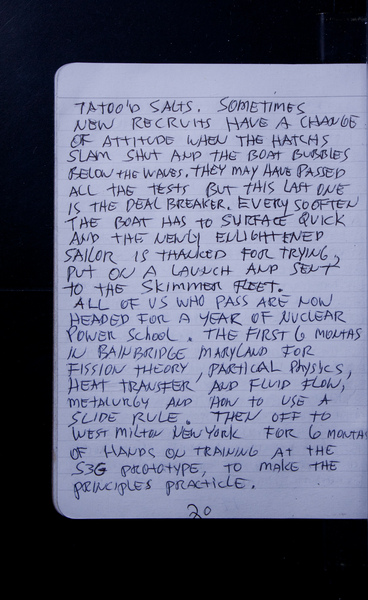 TATOO'D SALTS. SOMETIMES
NEW RECRUITS HAVE A CHANGE
OF ATTITUDE WHEN THE HATCHS
SLAM SHUT AND THE BOAT BUBBLES
BELOW THE WAVES. THEY MAY HAVE PASSED
ALL THE TESTS BUT THIS LAST ONE
IS THE DEAL BREAKER. EVERY SO OFTEN
THE BOAT HAS TO SURFACE QUICK
AND THE NEWLY ENLIGHTENED
SAILOR IS THANKED FOR TRYING,
PUT ON A LAUNCH AND SENT
TO THE SKIMMER FLEET.
ALL OF US WHO PASS ARE NOW
HEADED FOR A YEAR OF NUCLEAR
POWER SCHOOL. THE FIRST 6 MONTHS
IN BAINBRIDGE MARYLAND FOR
FISSION THEORY, PARTICAL PHYSICS,
HEAT TRANSFER AND FLUID FLOW,
METALURGY AND HOW TO USE A
SLIDE RULE. THEN OFF TO
WEST MILTON NEW YORK FOR 6 MONTHS
OF HANDS ON TRAINING AT THE
S3G PROTOTYPE, TO MAKE THE
PRINCIPLES PRACTICLE.
20